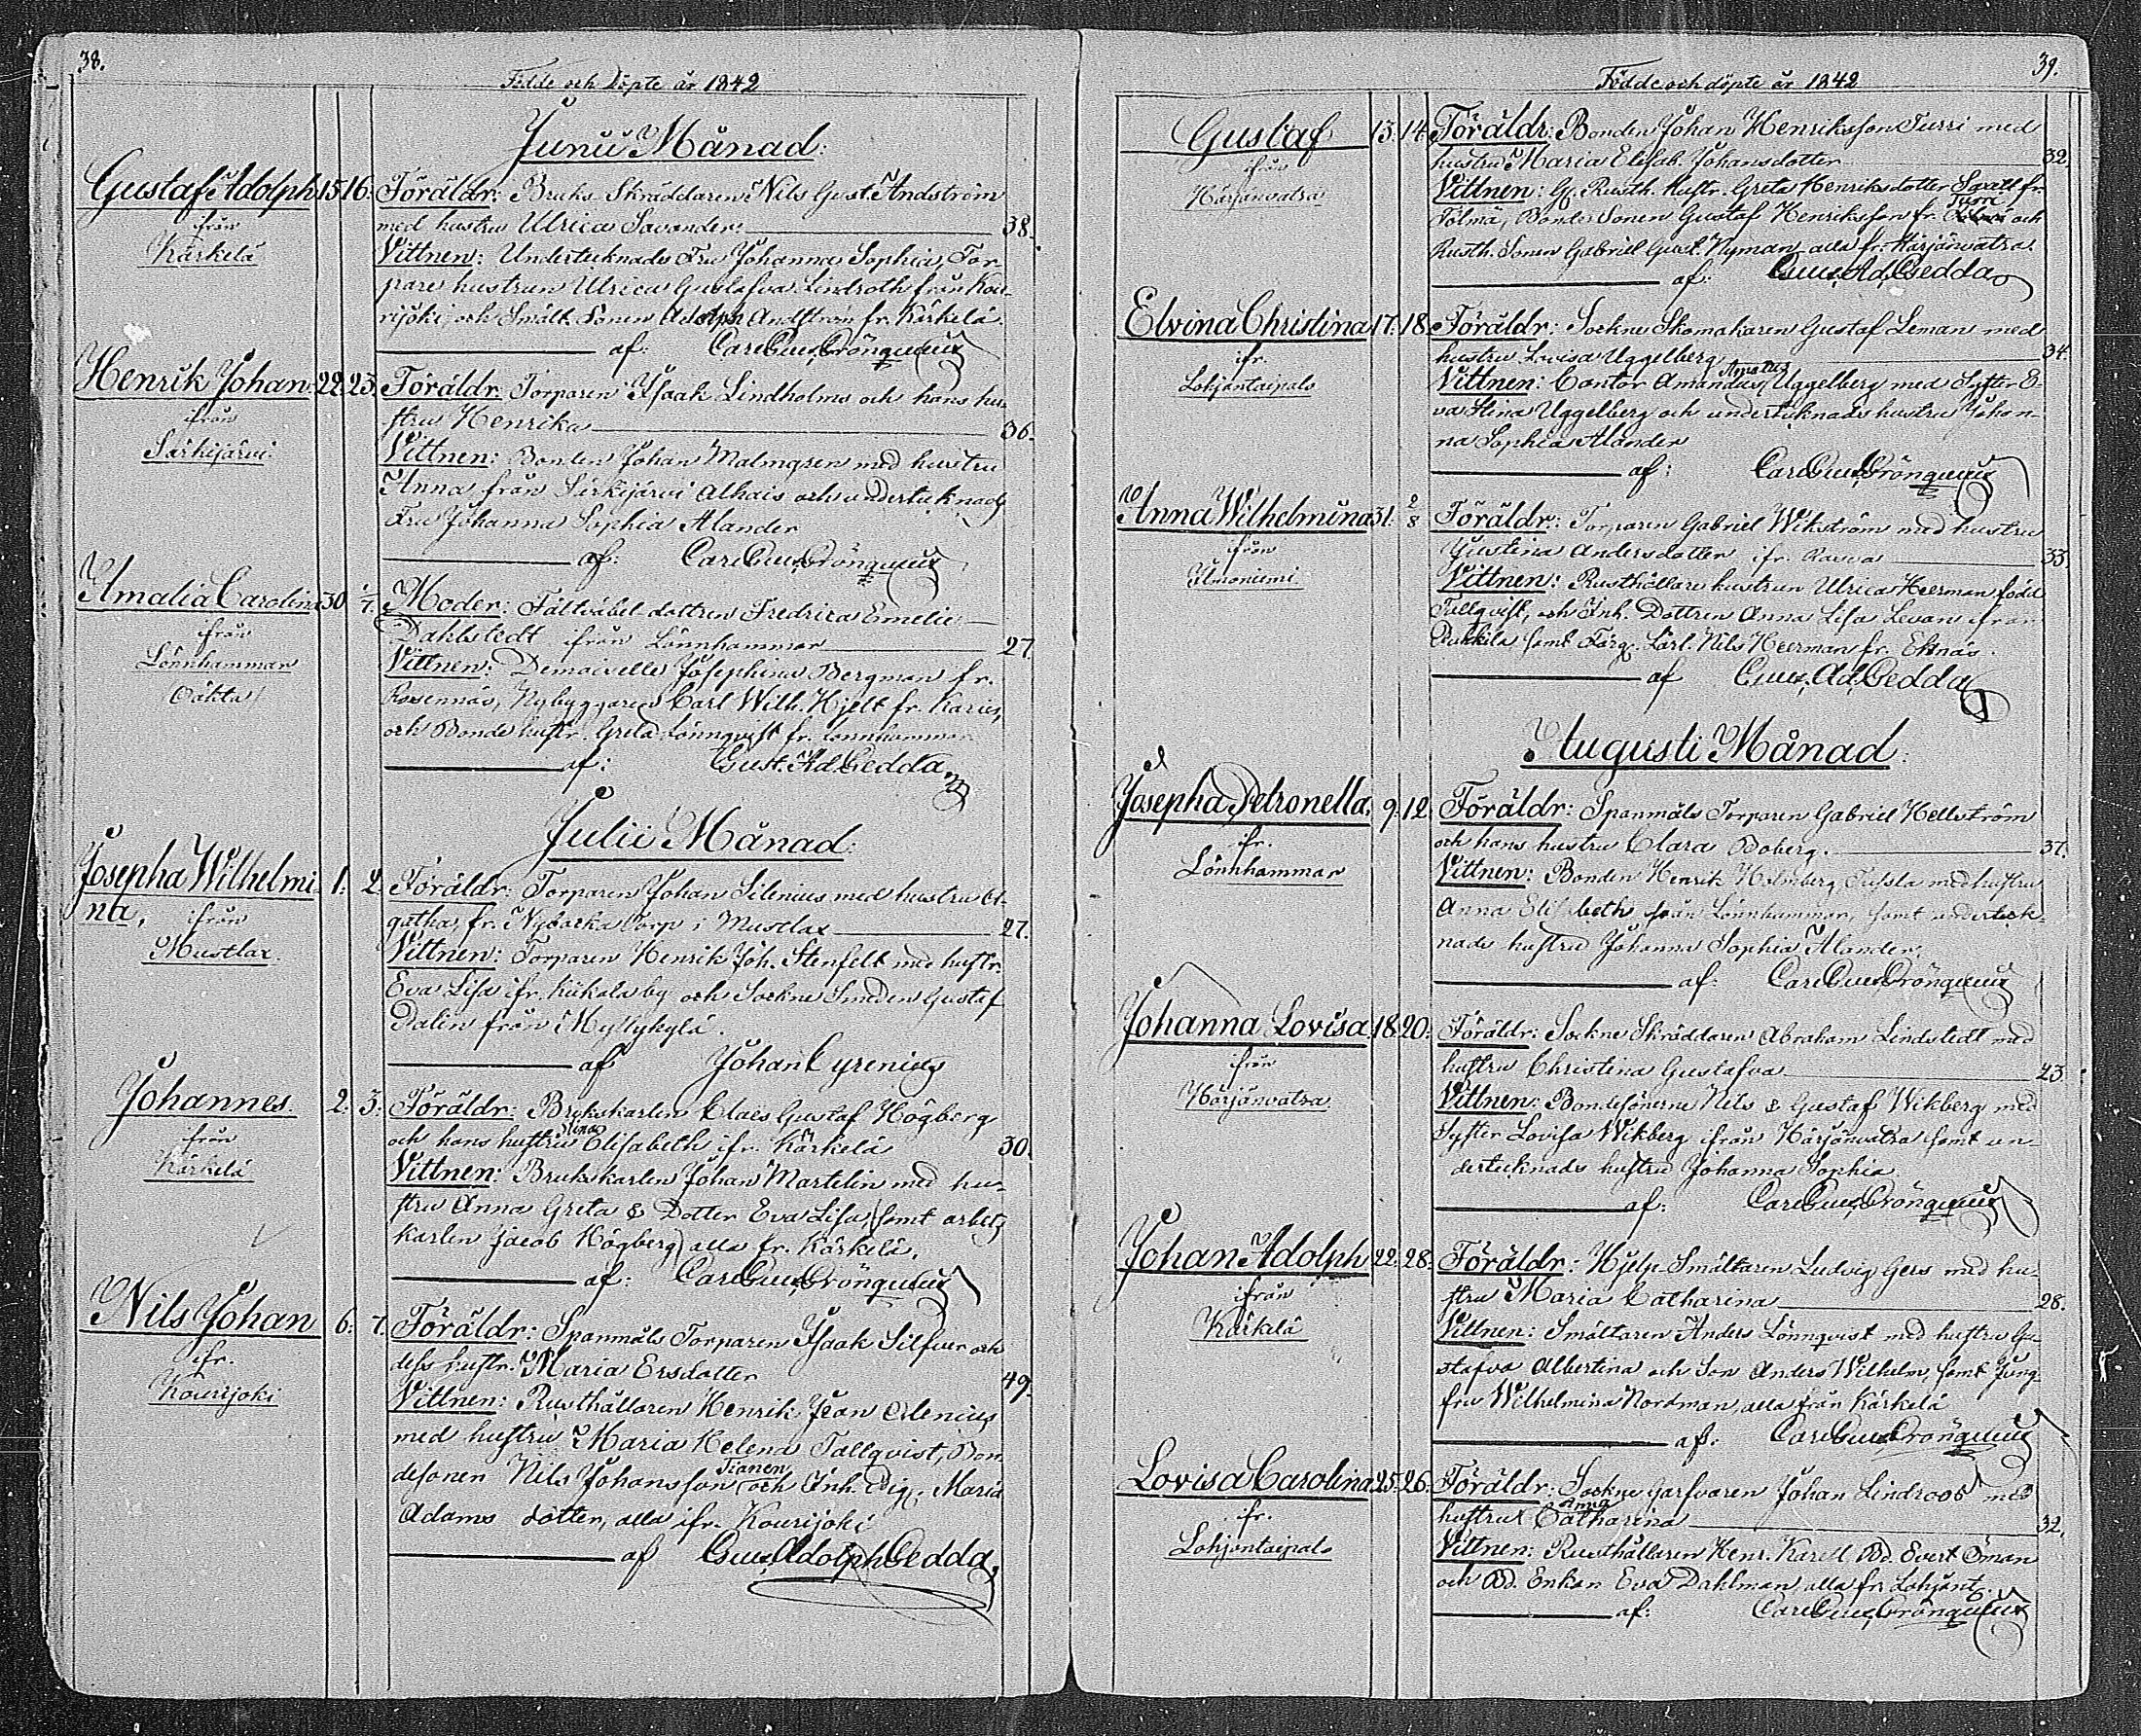 38.
Födde och Döpte år 1842
Junii Månad:
Gustaf Adolph 15. 16. Föräldr: Bruks Skräddaren Nils Gust. Andström
ifrån
Kärkelä
med hustru Ulrica Savander 38.
Vittnen: Undertecknads Fru Johanna Sophia, Tor-
pare hustrun Ulrica Gustafva Lindroth från Kou-
rijoki, och Smält. Sonen Adolph Andström fr. Kärkelä.
af: Carl Gust. Grönqvist
Henrik Johan. 22. 23. Föräldr: Torparen Isaak Lindholm och hans hu-
ifrån
Särkijärvi.
stru Henrika 36.
Vittnen: Bonden Johan Malmgren med hustru
Anna från Särkijärvi Alhais och undertecknads
Fru Johanna Sophia Alander
af: Carl Gust. Grönqvist
Amalia Carolina 30. 1/7. Moder: Fältväbel dottren Fredrica Emelie
ifrån
Lönnhammar
Oäkta
Dahlstedt ifrån Lönnhammar 27.
Vittnen: Demoiselle Josephina Bergman fr.
Rosennäs, Nybyggaren Carl Wilh. Hjelt fr. Karis,
och Bonde hustr. Greta Lönnqvist fr. Lönnhammar
af: Gust. Ad. Gedda
Julii Månad:
Josepha Wilhelmi- 1. 2. Föräldr: Torparen Johan Silenius med hustru A-
na, ifrån
Mustlax.
gatha, fr. Nybacka Torp i Mustlax 27.
Vittnen: Torparen Henrik Joh. Stenfelt med hustr.
Eva Lisa ifr. Kükala by och Sockne Smeden Gustaf
Dalin från Myllykylä.
af Johan Cyrenius
Johannes. 2. 3. Föräldr: Brukskarlen Claes Gustaf Högberg
ifrån
Kärkelä
Stina
och hans hustru Elisabeth ifr. Kärkelä 30.
Vittnen: Brukskarlen Johan Martelin med hu-
stru Anna Greta & Dotter Eva Lisa, samt arbets
karlen Jacob Högberg, alla fr. Kärkelä.
af: Carl Gust. Grönqvist
Nils Johan 6. 7. Föräldr: Spanmåls Torparen Isaak Silfver och
ifr.
Kourijoki
dess hustr. Maria Ersdotter 49.
Vittnen: Rusthållaren Henrik Jean Alenius
med hustru Maria Helena Tallqvist, Bon-
Tianen
desonen Nils Johansson och Inh. Pig. Maria
Adams dotter, alla ifr. Kourijoki
af Gust. Adolph Gedda
39.
Födde och döpte år 1842
Gustaf 13. 14. Föräldr: Bonden Johan Henriksson Turri med
ifrån
Härjänvatsa
hustru Maria Elisab. Johansdotter 32.
Vittnen: Rusth. hustr. Greta Henriksdotter fr.
Turri
Tölmä, Bonde Sonen Gustaf Henriksson fr. och
Rusth. Sonen Gabriel Gust. Nyman, alla fr. Härjänvatsa
af: Gust. Ad. Gedda
Elvina Christina 17. 18. Föräldr: Sockne Skomakaren Gustaf Leman med
ifr.
Lohjantaipals
hustru Lovisa Uggelberg 34.
Amatus
Vittnen: Cantor Amandus Uggelberg med Syster E-
va Stina Uggelberg och undertecknads hustru Johan-
na Sophia Alander
af: Carl Gust. Grönqvist
Anna Wilhelmina 31. 2/8 Föräldr: Torparen Gabriel Wikström med hustru
ifrån
Ilmoniemi
Justina Andersdotter ifr. 33.
Vittnen: Rusthållare hustrun Ulrica Heerman född
Tallqvist, och Inh. Dottren Anna Lisa Levon ifrån
Pukkila samt Färg. Lärl. Nils Heerman fr. Eknäs.
af Gust. Ad. Gedda
Augusti Månad:
Josepha Petronella. 9. 12. Föräldr: Spanmåls Torparen Gabriel Hellström
ifr.
Lönnhammar
och hans hustru Clara Boberg. 37.
Vittnen: Bonden Henrik Holmberg med hustru
Anna Elisabeth från Lönnhammar, samt underteck-
nads hustru Johanna Sophia Alander.
af: Carl Gust. Grönqvist
Johanna Lovisa 18. 20. Föräldr: Sockne Skräddaren Abraham Lindstedt med
ifrån
Härjänvatsa
hustru Christina Gustafva 23.
Vittnen: Bondesönerne Nils & Gustaf Wikberg med
Syster Lovisa Wikberg ifrån Härjänvatsa samt un-
dertecknads hustru Johanna Sophia
af: Carl Gust. Grönqvist
Johan Adolph 22. 28. Föräldr: Hjelp Smältaren Ludvig Gers med hu-
ifrån
Kärkelä
stru Maria Catharina 28.
Vittnen: Smältaren Anders Lönnqvist med hustru Gu-
stafva Albertina och Son Anders Wilhelm, samt Jung-
fru Wilhelmina Nordman, alla från Kärkelä
af: Carl Gust. Grönqvist
Lovisa Carolina 25. 26. Föräldr: Sockne Garfvaren Johan Lindroos med
ifr.
Lohjantaipals
Anna
hustru Catharina 32.
Vittnen: Rusthållaren Henr. Karell Bd. Evert Öman
och Bd. Enkan Eva Dahlman, alla fr. Lohjant.
af: Carl Gust. Grönqvist